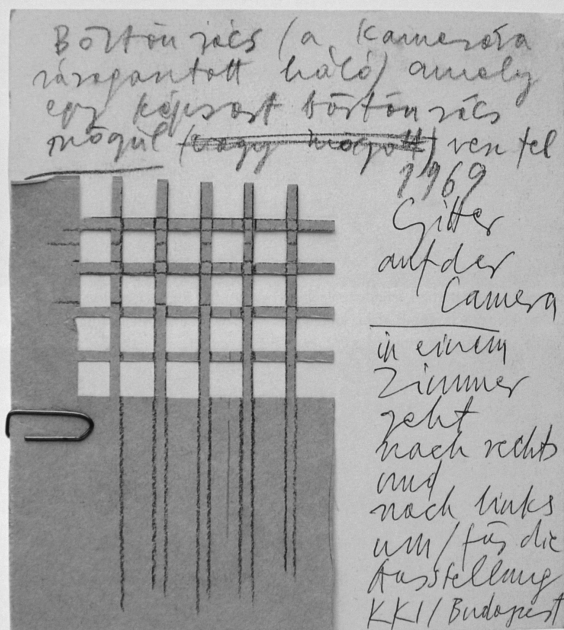 Börtön rács (a kamerára
ráragasztott háló) amely
egy képsort börtön rács
mögül (vagy mögött) vesz fel
1969
Gitter
auf der
Camera
in einem
Zimmer
geht
nach rechts
und
nach links
um / für die
Ausstellung
KKI / Budapest